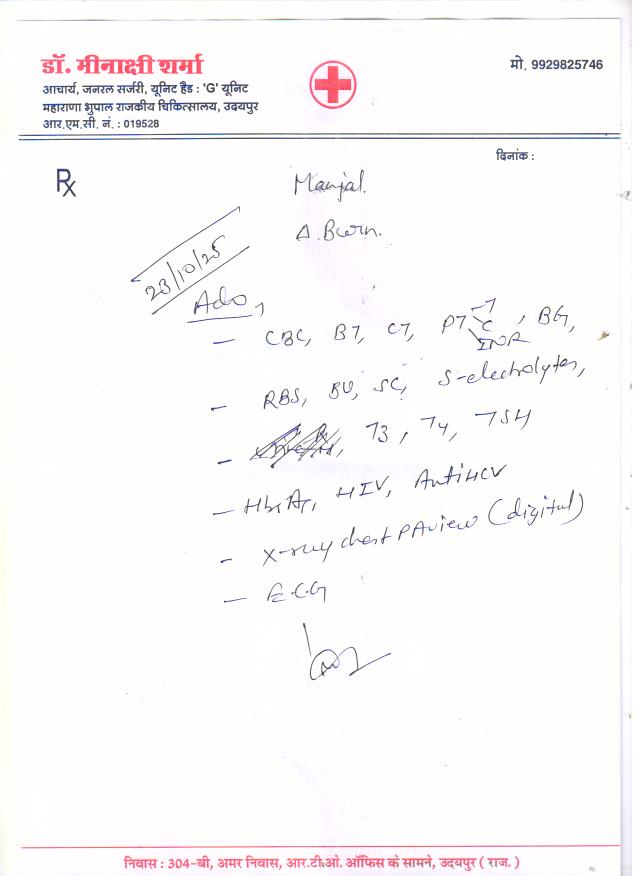 डॉ. मीनाक्षी शर्मा
मो. 9929825746
आचार्य, जनरल सर्जरी, यूनिट हैड : 'G' यूनिट
महाराणा भुपाल राजकीय चिकित्सालय, उदयपुर
आर.एम.सी. नं. : 019528
दिनांक :
Rx
Manjal.
A. Burn.
23/10/25
Adv,
- CBC, BT, CT, PT-T, BG,
C
INR
- RBS, BU, SC, S-electrolytes,
- T3, T4, TSH
- HbsAg, HIV, AntiHCV
- X-ray chest PA view (digital)
- E.C.G
निवास : 304-बी, अमर निवास, आर.टी.ओ. ऑफिस के सामने, उदयपुर ( राज. )